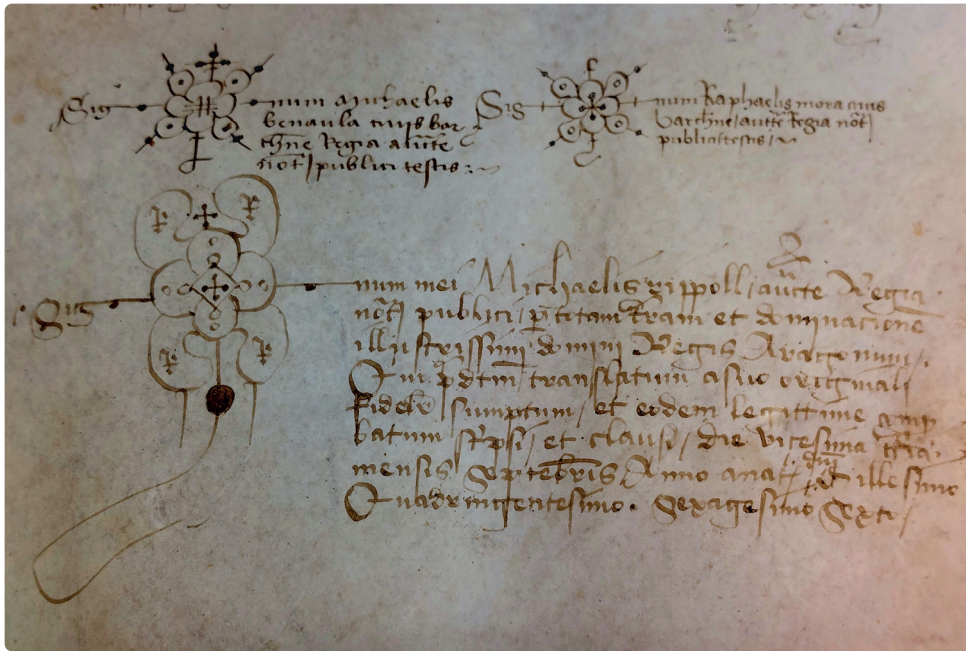 Sig num Michaelis
benaula civis bar
chñe Regia auctte
not publici testis
Sig num Raphaelis mora civis
barchñe auctte Regia not
publici testis
Sig num mei Michaelis rippoll aucte Regia
not publici p totam tram et dominacione
illustrissimi domini Regis Aragonum
Qui pdtm translatum a suo originali
fideltr sumptum et eodem legittime comp
batum sc̃psi et clausi die vicesima
mensis Septebris Anno a nat dni Millesimo
Quadringentesimo Sexagesimo Sexto